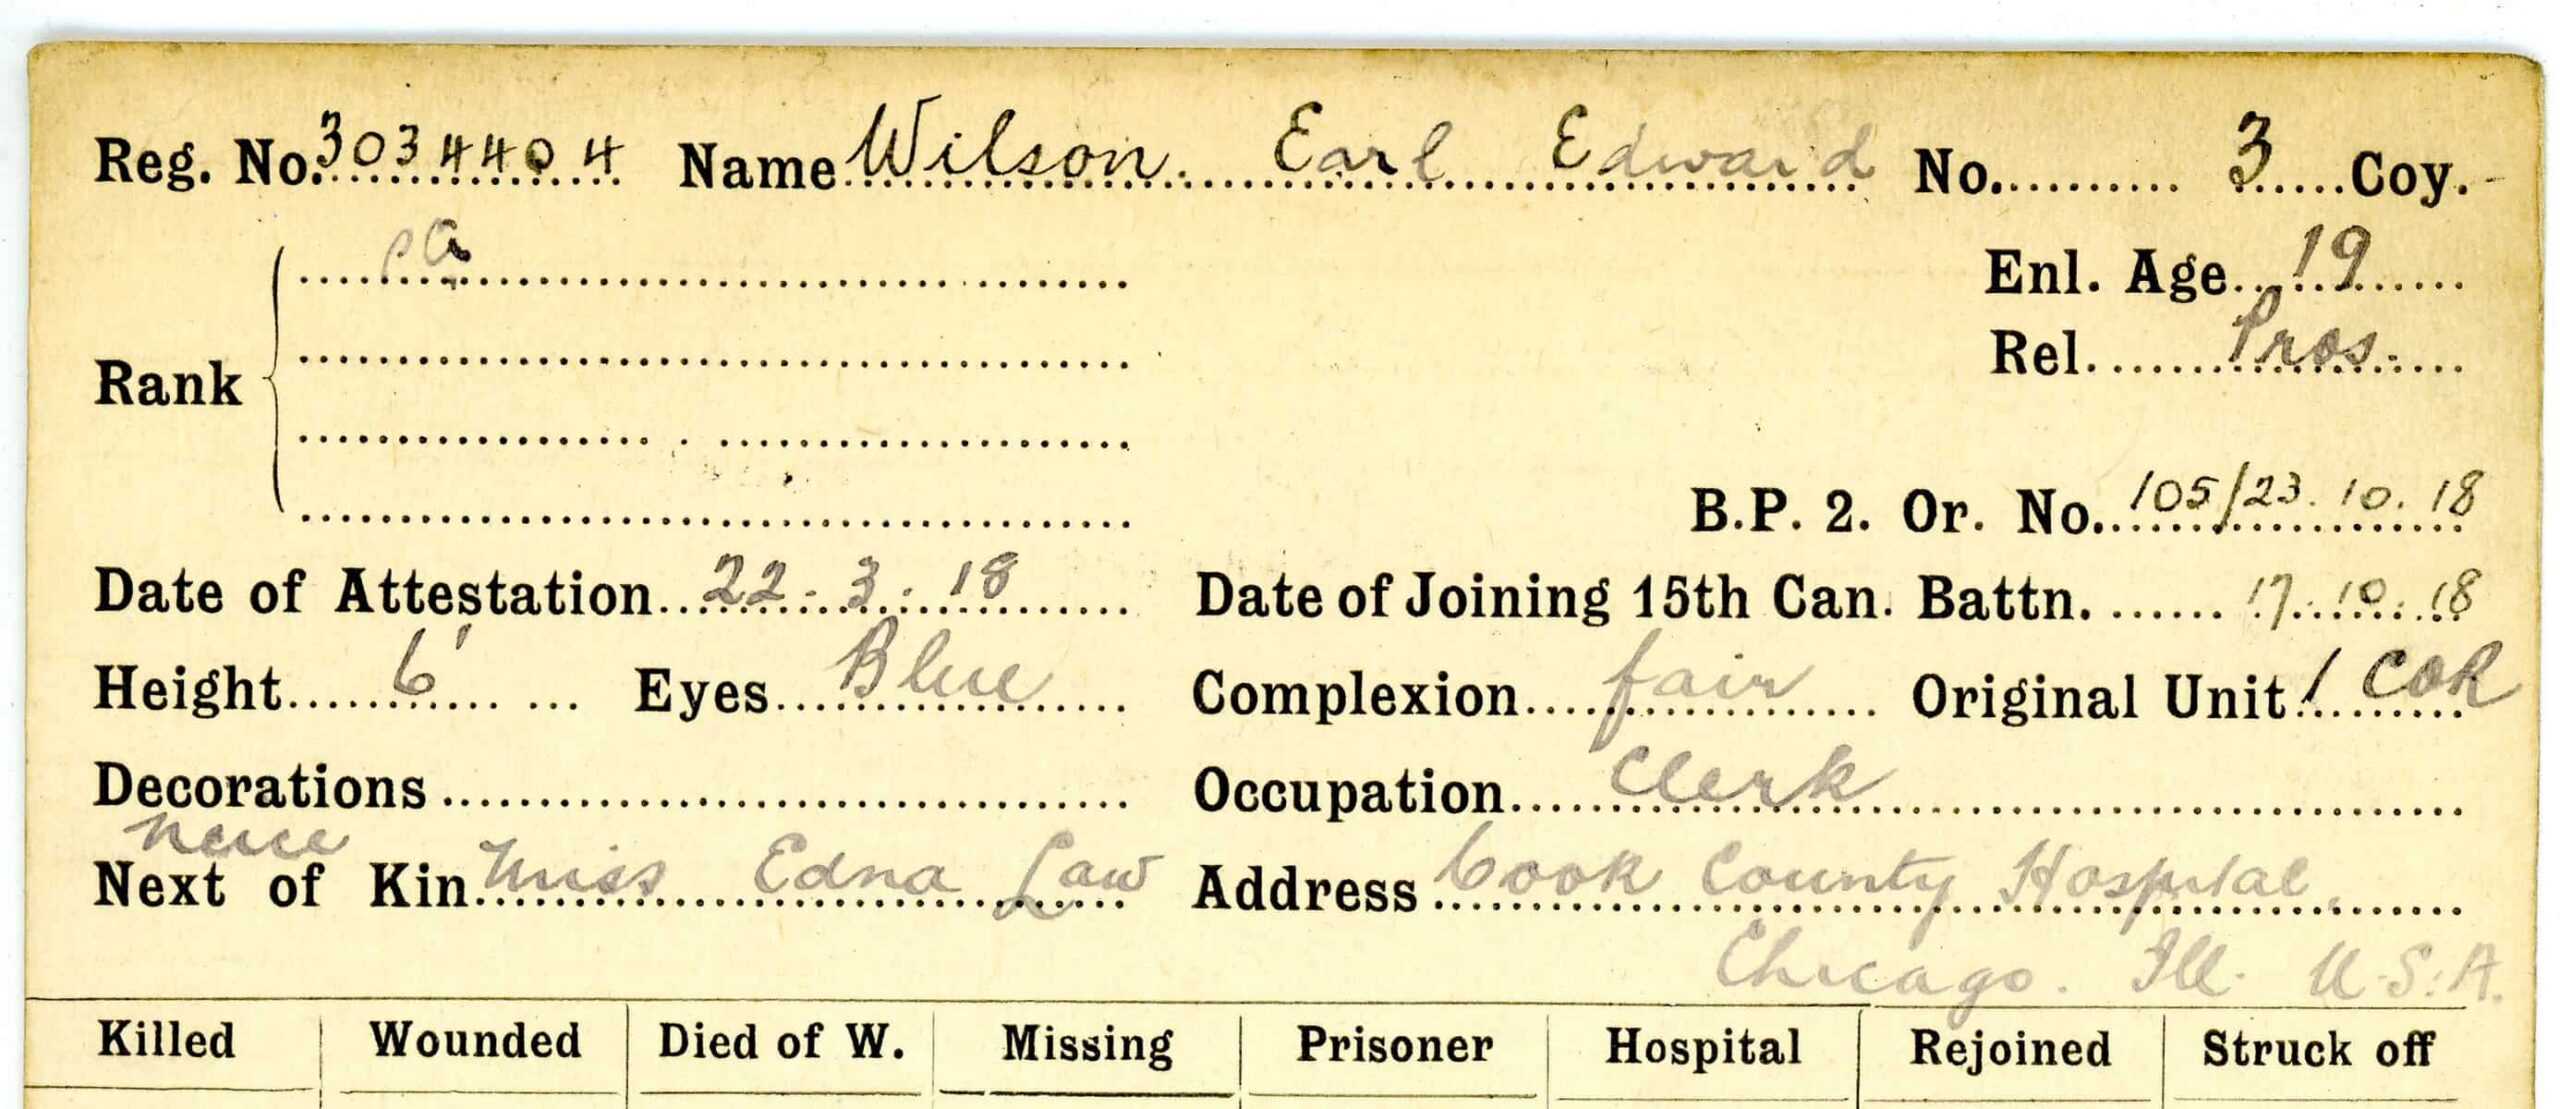 Reg. No. 3034404 Name Wilson. Earl Edward No. 3 Coy.
Enl. Age 19
Rel. Pros.
Rank
B.P. 2. Or. No. 105/23.10.18
Date of Attestation 22.3.18 Date of Joining 15th Can. Battn. 17.10.18
Height 6' Eyes Blue Complexion fair Original Unit 1 COR
Decorations Occupation Clerk
Next of Kin Miss Edna Law Address Cook County Hospital
Chicago. Ill. U.S.A.
Killed Wounded Died of W. Missing Prisoner Hospital Rejoined Struck off